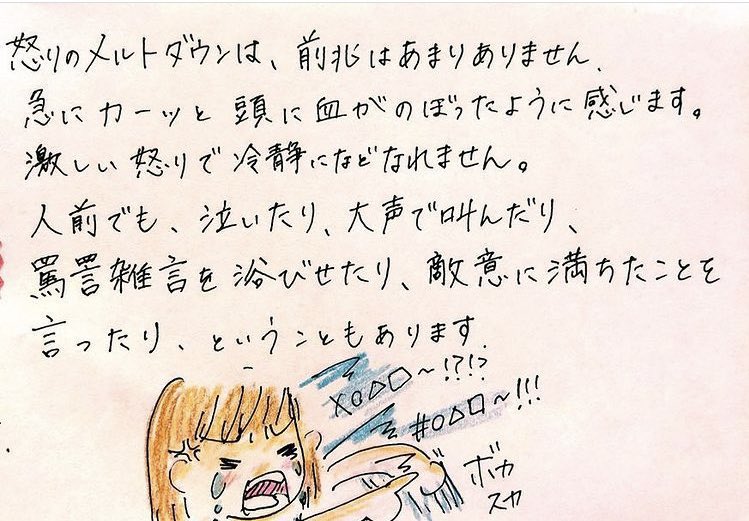 怒りのメルトダウンは、前兆はあまりありません、
急にカーッと頭に血がのぼったように感じます。
激しい怒りで冷静になどなれません。
人前でも、泣いたり、大声で叫んだり、
罵詈雑言を浴びせたり、敵意に満ちたことを
言ったり、ということもあります.
×○△□~!?!?
#○△□~!!!
ボカ
スカ